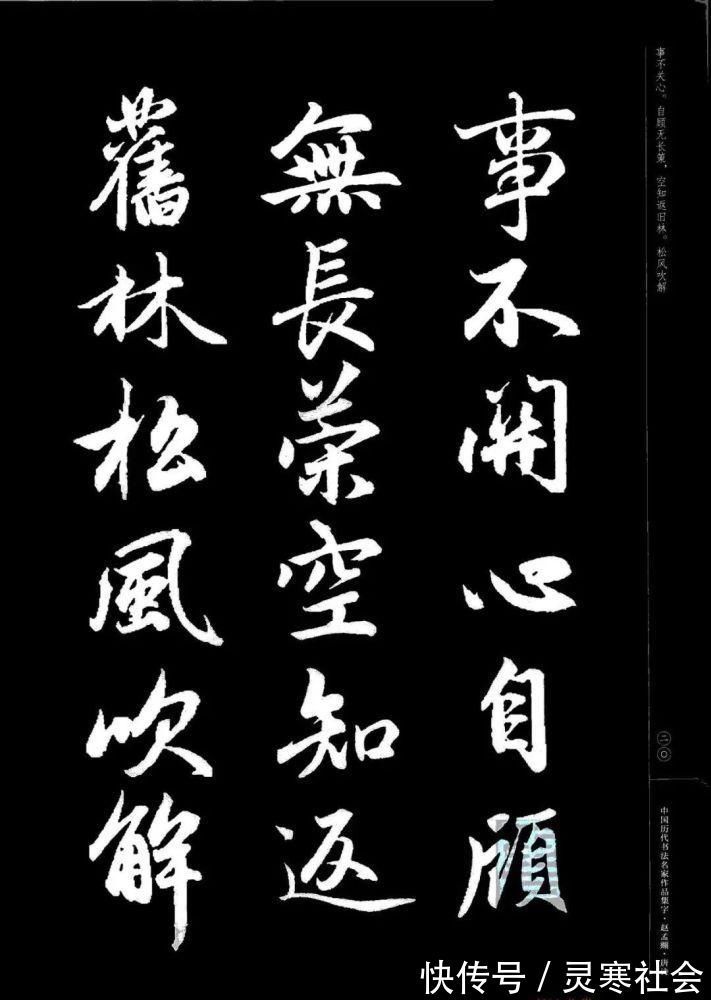 事不关心。自顾无长策，空知返旧林。松风吹解
事不關心自顧
無長策空知返
舊林松風吹解
二〇
中国历代书法名家作品集字·赵孟頫·唐诗
快传号／灵寒社会